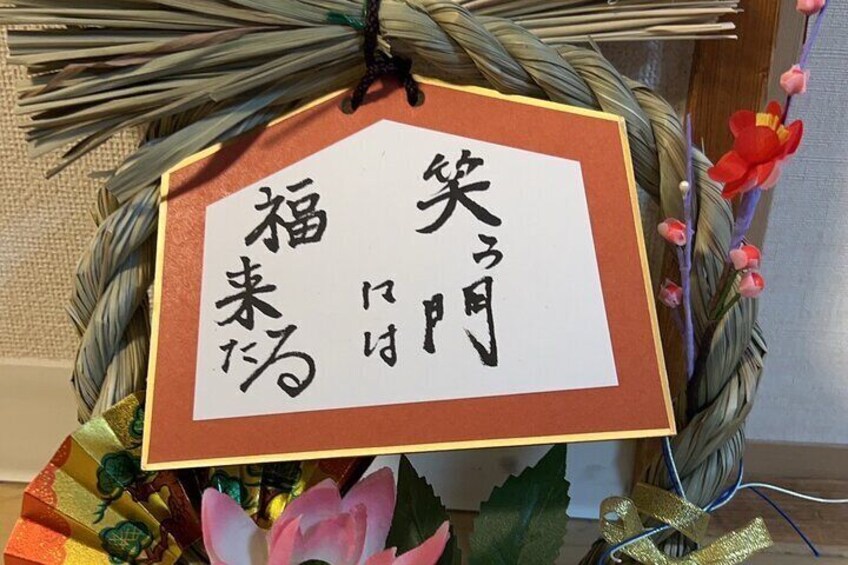 笑う門
には
福
来たる